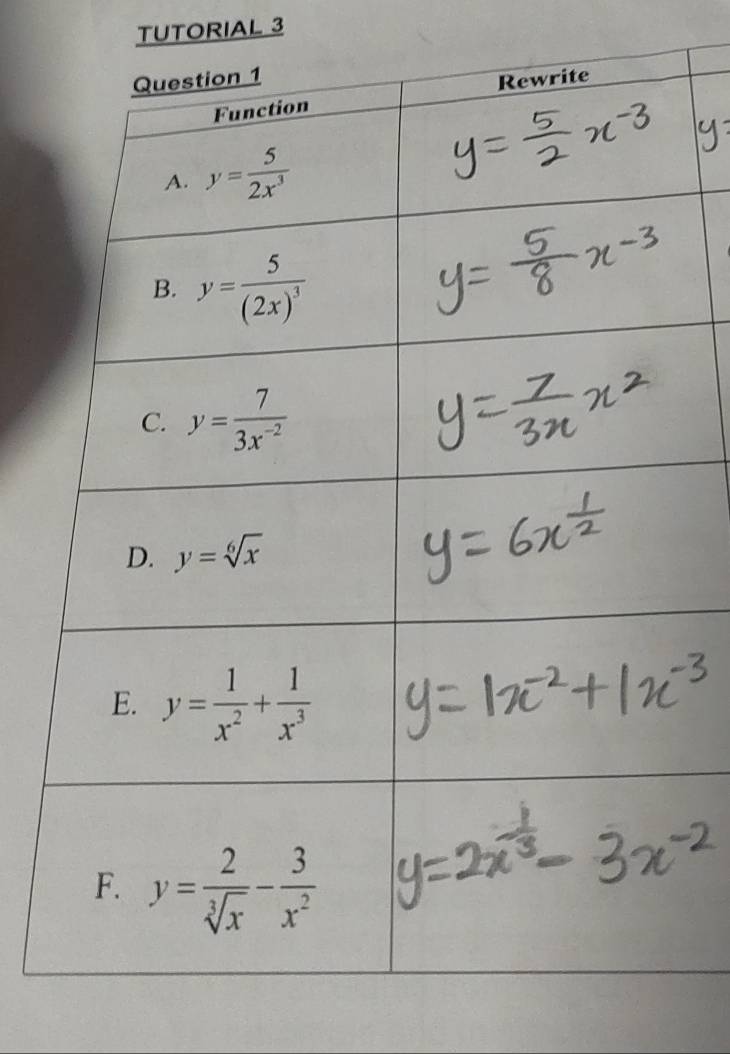 TUTORIAL 3
Question 1
Function Rewrite
A. y = 5/(2x³) y = 5/2 x⁻³ y=
B. y = 5/(2x)³ y = 5/8 x⁻³
C. y = 7/(3x⁻²) y = 7/(3x) x²
D. y = ⁶√x y = 6x^(1/2)
E. y = 1/x² + 1/x³ y = 1x⁻² + 1x⁻³
F. y = 2/∛x − 3/x² y = 2x^(-1/3) − 3x⁻²